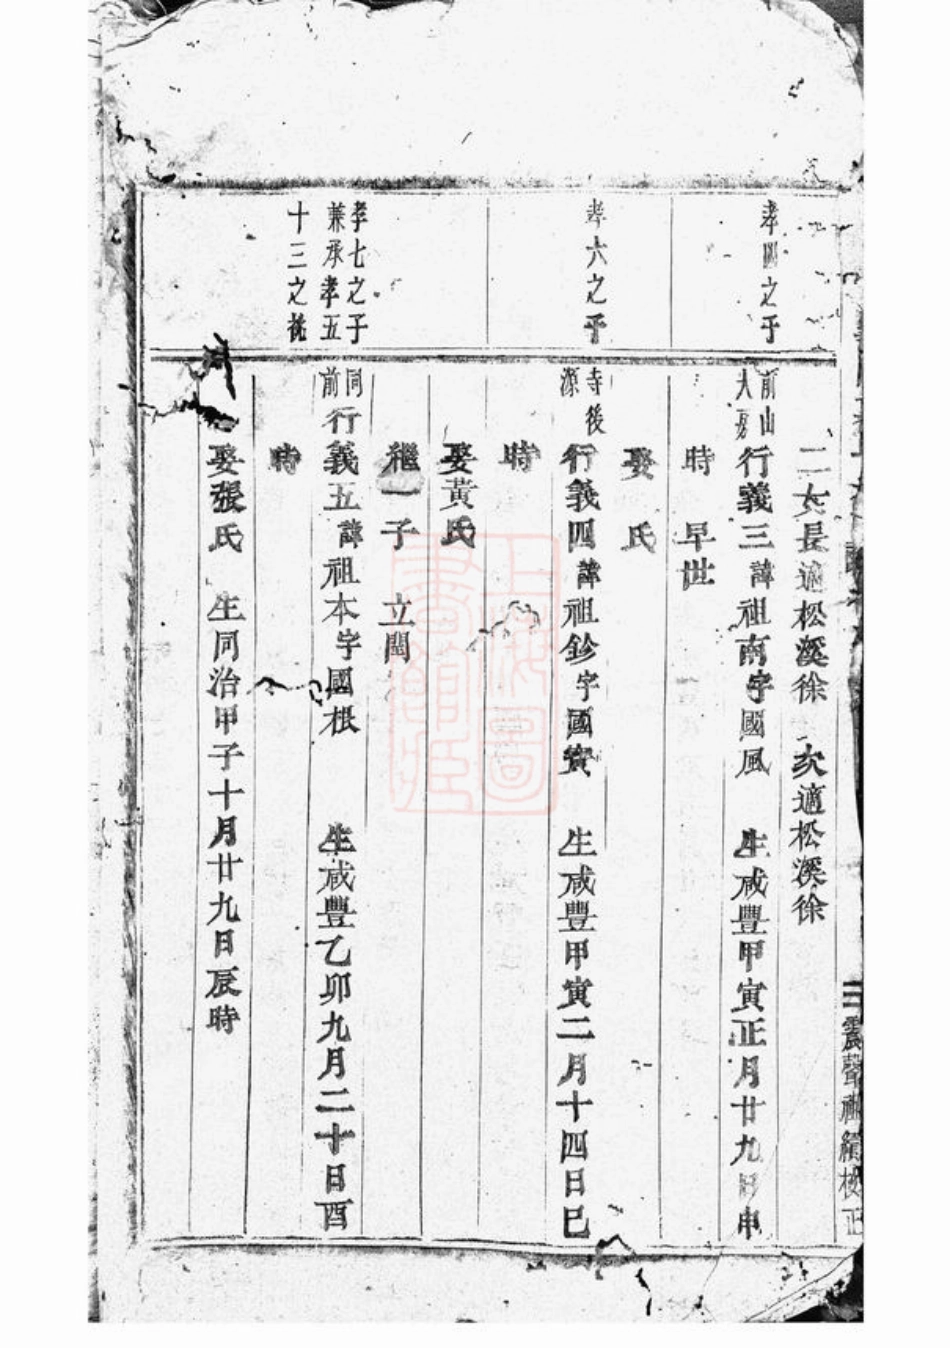 二女長適松溪徐 次適松溪徐
孝四之子
前山
行義三諱祖南字國風 生咸豐甲寅正月廿九日申
時 早世
娶 氏
孝六之子
寺後
源
行義四諱祖鈔字國賓 生咸豐甲寅二月十四日巳
時
娶黃氏
繼一子 立閏
孝七之子
兼承孝五
十三之祧
同
前
行義五諱祖本字國根 生咸豐乙卯九月二十日酉
時
娶張氏 生同治甲子十月廿九日辰時
上海圖
書館藏